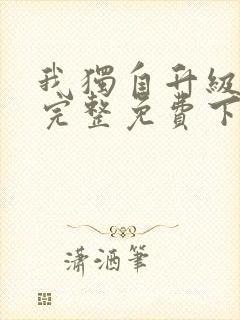 我獨自升級
完整免費下
瀟洒筆